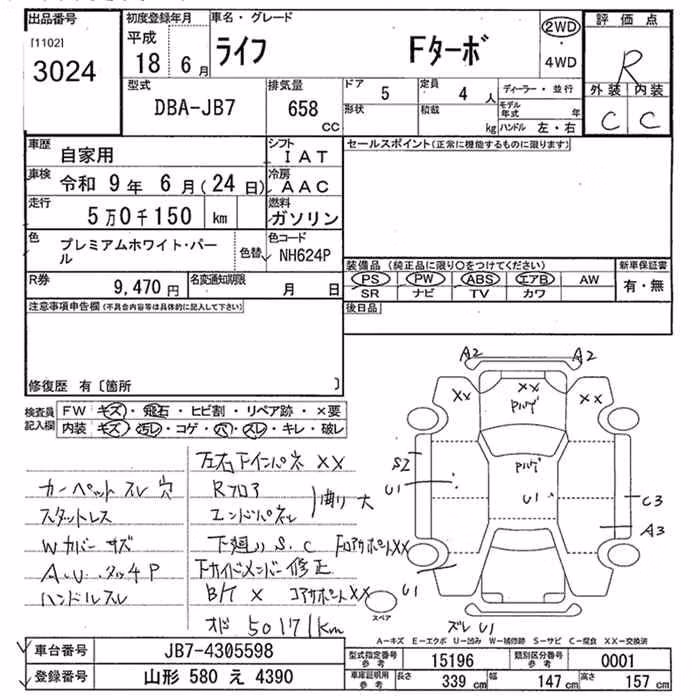 出品番号 初度登録年月 車名・グレード 評価点
[1102] 平成 ライフ Fターボ 2WD・4WD R
3024 18 6月
型式 排気量 ドア 5 定員 4人 ディーラー・並行 外装 内装
DBA-JB7 658 cc 形状 積載 kg モデル年式 年 C C
ハンドル 左・右
車歴 自家用 シフト IAT セールスポイント(正常に機能するものに限ります)
車検 令和 9年 6月(24日) 冷房 AAC
走行 5万0千150 km 燃料 ガソリン
色 プレミアムホワイト・パール 色替 色コード NH624P
装備品(純正品に限り○をつけてください) 新車保証書
R券 9,470円 名変通知期限 月 日 PS PW ABS エアB AW 有・無
SR ナビ TV カワ
注意事項申告欄(不具合内容等は具体的に記入して下さい) 後日品
修復歴 有〔箇所 〕
検査員記入欄 FW キズ・飛石・ヒビ割・リペア跡・×要
内装 キズ・汚レ・コゲ・穴・スレ・キレ・破レ
左右Fインパネ XX
カーペットスレ 穴 Rフロア
スタットレス エンドパネル 曲り 大
Wカバー キズ 下廻り S.C FコアサポートXX
A.U.タッチP Fサイドメンバー修正
ハンドルスレ B/F X コアサポートXX
オド 50171km
A2 A2
XX XX XX
Pハゲ
S2 Pハゲ
U1 U1 C3
A3
U1
スペア
ズレ U1
A-キズ E-エクボ U-凹み W-補修跡 S-サビ C-腐食 XX-交換済
車台番号 JB7-4305598 型式指定番号 参考 15196 類別区分番号 参考 0001
登録番号 山形 580 え 4390 車庫証明用 参考 長さ 339 cm 幅 147 cm 高さ 157 cm